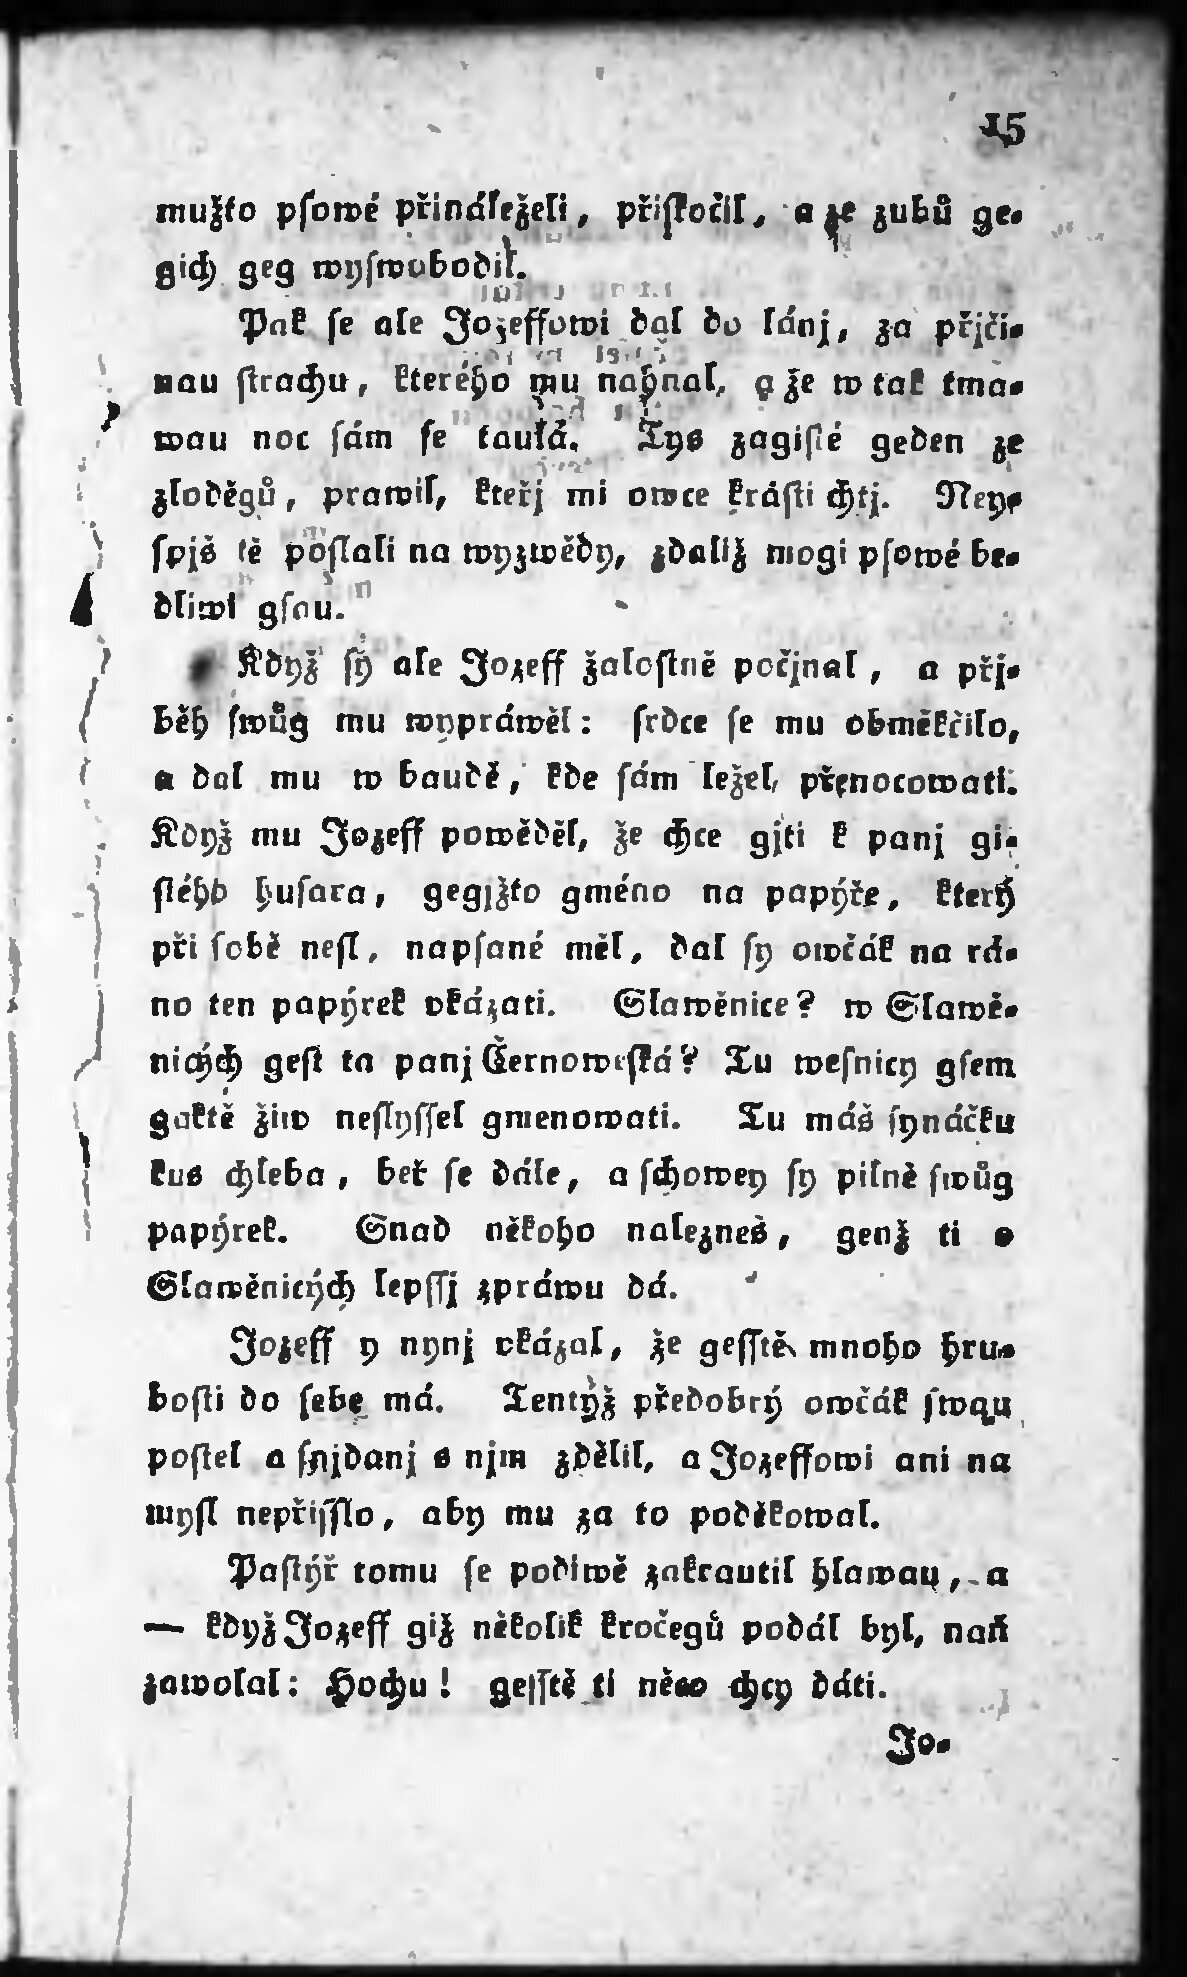 15
mužto pſowé přináleželi, přiſkočil, a ze zubů ge-
gich geg wyſwobodil.
Pak ſe ale Jozeffowi dal do lánj, za přjči-
nau ſtrachu, kterého mu nahnal, a že w tak tma-
wau noc ſám ſe taulá. Tys zagiſté geden ze
zloděgů, prawil, kteřj mi owce kráſti chtj. Ney-
ſpjš tě poſlali na wyzwědy, zdaliž mogi pſowé be-
dliwi gſau.
Když ſy ale Jozeff žaloſtně počjnal, a přj-
běh ſwůg mu wypráwěl: ſrdce ſe mu obměkčilo,
a dal mu w baudě, kde ſám ležel, přenocowati.
Když mu Jozeff powěděl, že chce gjti k panj gi-
ſtého huſara, gegjžto gméno na papýře, který
při ſobě neſl, napſané měl, dal ſy owčák na rá-
no ten papýrek vkázati. Slawěnice? w Slawě-
nicých geſt ta panj Černowſká? Tu weſnicy gſem
gaktě žiw neſlyſſel gmenowati. Tu máš ſynáčku
kus chleba, beř ſe dále, a ſchowey ſy pilně ſwůg
papýrek. Snad někoho nalezneš, genž ti o
Slawěnicých lepſſj zpráwu dá.
Jozeff y nynj vkázal, že geſſtě mnoho hru-
boſti do ſebe má. Tentýž předobrý owčák ſwau
poſtel a ſnjdanj s njm zdělil, a Jozeffowi ani na
myſl nepřiſſlo, aby mu za to poděkowal.
Paſtýř tomu ſe podiwě zakrautil hlawau, a
— když Jozeff giž několik kročegů podál byl, naň
zawolal: Hochu! geſſtě ti něco chcy dáti.
Jo-